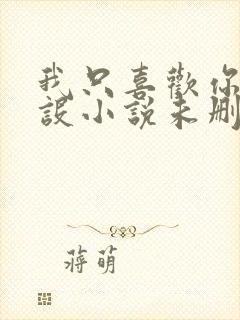 我只喜歡你
設小說未刪
蔣萌